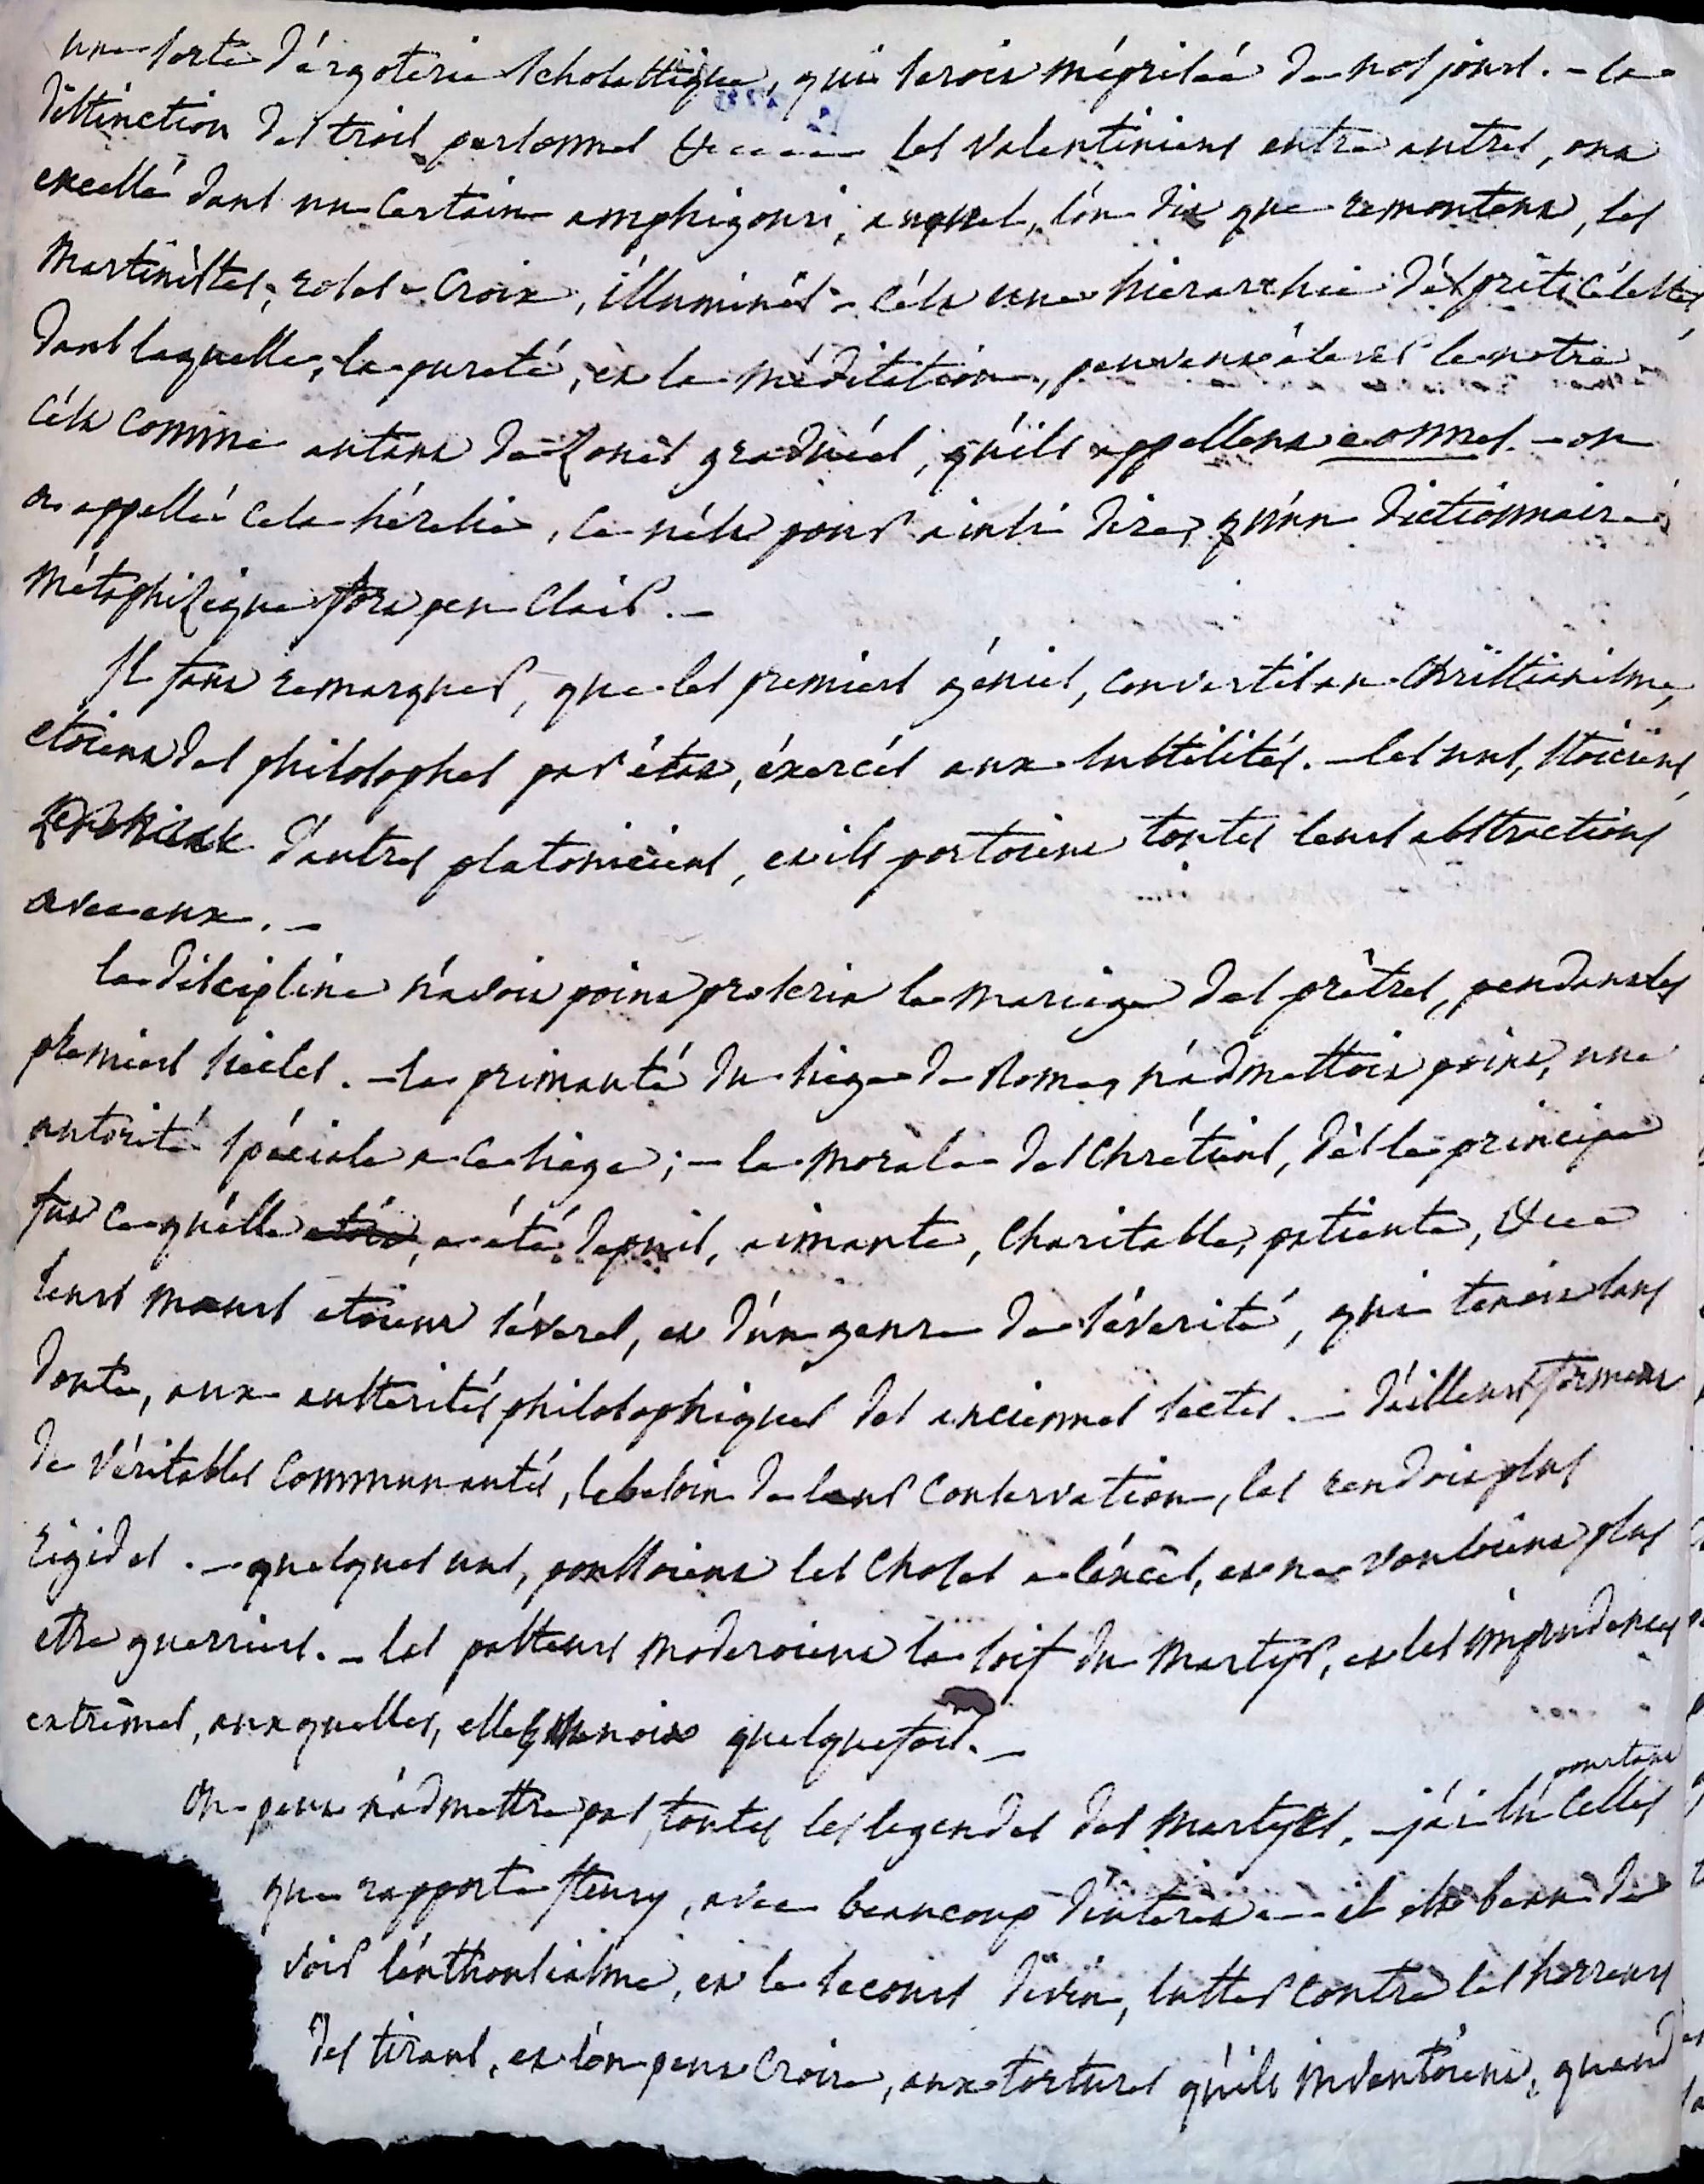 une sorte d'érgoterie scholastique, qui seroit méprisée de nos jours. - la
distinction des trois personnes &c les valentiniens entre autres, ont
excellé dans un certain amphigouri, auquel, l'on dit que remontent, les
martinistes, roses-croix, illuminés - c'ést une hierarchie d'ésprits célestes,
dans laquelle, la pureté, et la méditation, peuvent éléver le notre
c'ést comme autant de zones graduées, qu'ils appellent eonnes. - on
a appellé cela hérésie, ce n'ést pour ainsi dire, qu'un dictionnaire
métaphizique fort peu clair. -
Il faut remarquer, que les premiers génies, convertis au christianisme,
étoient des philosophes par état, éxercés aux subtilités. - les uns, stoiciens,
d'autres platoniciens, et ils portoient toutes leurs abstractions
avec eux. -
la discipline n'avoit point proscrit le mariage des prêtres, pendant les
premiers siecles. - la primauté du siege de Rome, n'admettoit point, une
autorité spéciale a ce siege; - la morale des chrétiens, dès le principe
fut ce qu'elle étoit, a été depuis, aimante, charitable, patiente, &c
leurs moeurs etoient sévères, et d'un genre de sévérité, qui tenoit sans
doute, aux austerités philosophiques des anciennes sectes. - d'ailleurs formant
de véritables communautés, le besoin de leur conservation, les rendoit plus
rigides. - quelques uns, poussoient les choses a l'éxcès, et ne vouloient plus
etre guerriers. - les pasteurs moderoient la soif du martyr, et les imprudences
extrêmes, aux quelles, elle menoit quelquefois. -
On peut n'admettre pas toutes les legendes des martyrs, - j'ai lu pourtant celles
que rapporte fleury, avec beaucoup d'interet - il est beau de
voir l'enthousiasme, et le secours divin, lutter contre les horreurs
des tirans, et l'on peut croire, aux tortures qu'ils inventoient, quand